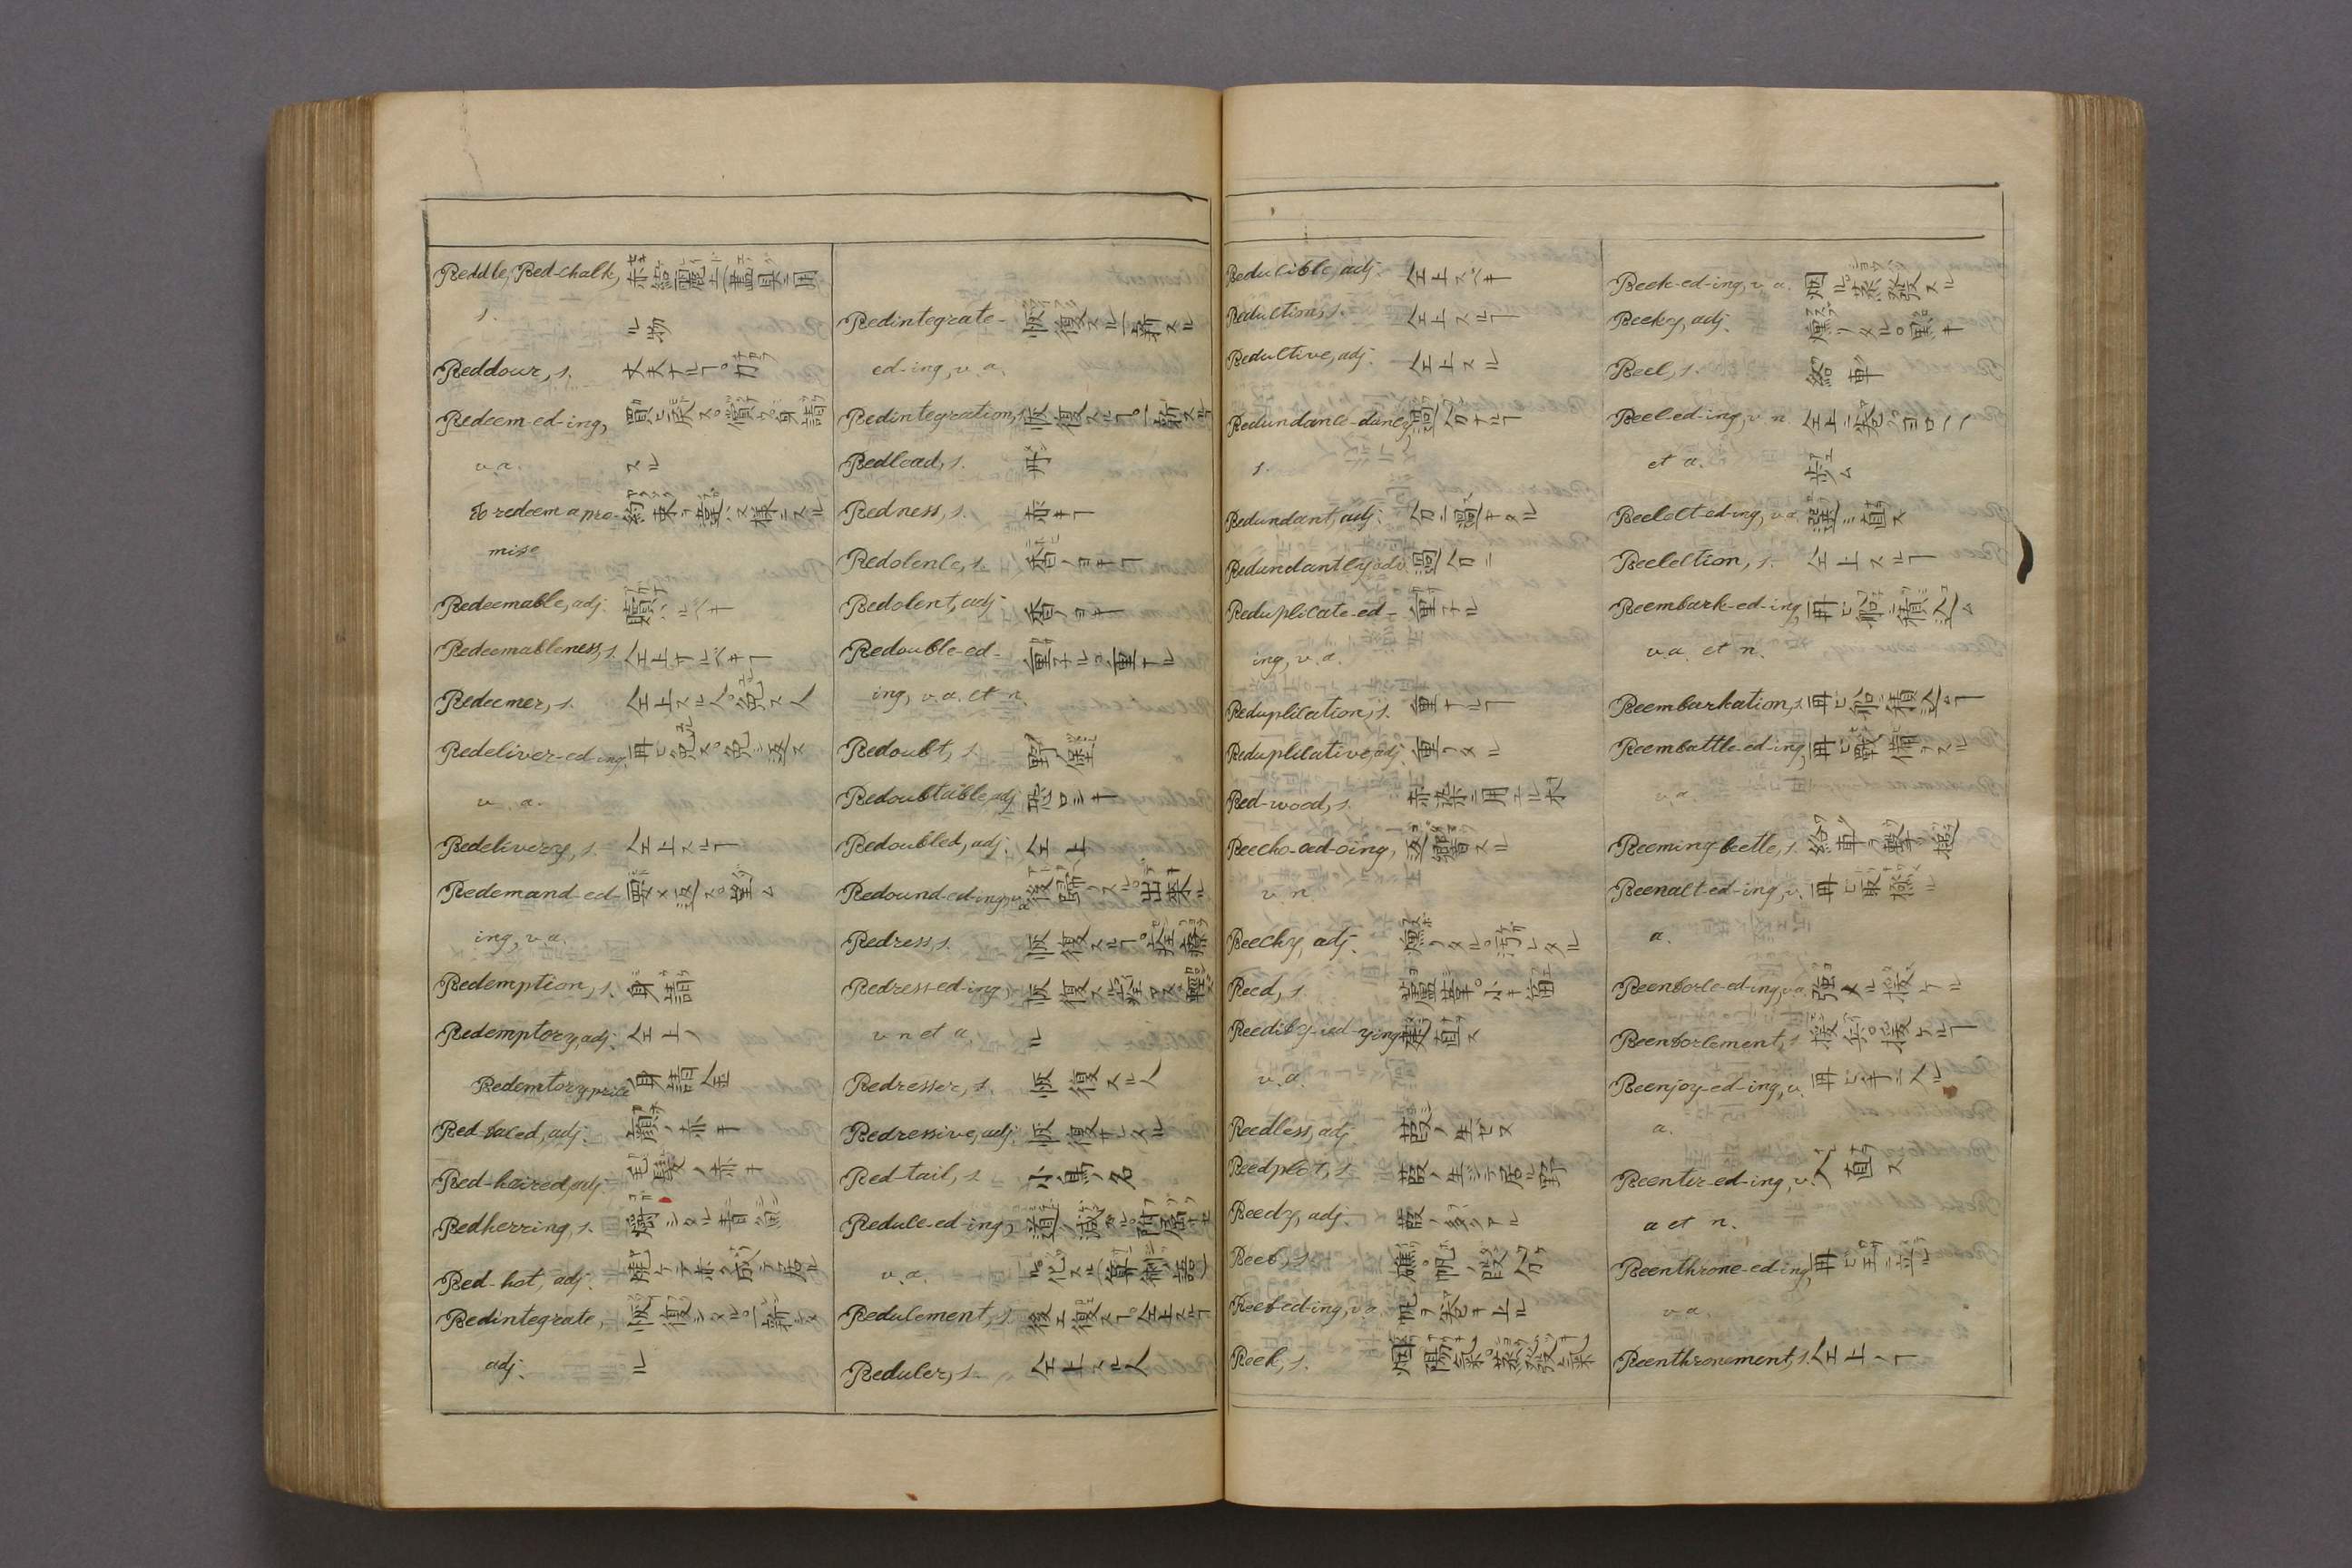 Reddle, Red-chalk, 赤給亜麗土(畫具ニ用
s. ル物
Reddour, s. 丈夫ナルコ。力
Redeem-ed-ing, 買ヒ戻ス。償フ。身請
v.a. スル
To redeem a pro- 約束ヲ違ハヌ様ニスル
mise
Redeemable, adj. 贖ハルベキ
Redeemableness, s. 仝上ナルベキコ
Redeemer, s. 仝上スル人。免ス人
Redeliver-ed-ing, 再ヒ免ス。免シ返ス
v. a.
Redelivery, s. 仝上スルコ
Redemand-ed- 要メ返ス。望ム
ing, v.a.
Redemption, s. 身請
Redemptory, adj. 仝上ノ
Redemtory price 身請金
Red-faced, adj. 顔ノ赤キ
Red-haired, adj. 毛髪ノ赤キ
Redherring, s.
Red-hot, adj. 燒ケテ赤ク成テ居ル
Redintegrate, 恢復シタル。一新シタ
adj. ル
Redintegrate- 恢復スル。一新スル
ed-ing, v. a.
Redintegration, s. 恢復スルコ。一新スルコ
Redlead, s. 丹
Redness, s. 赤キコ
Redolence, s. 香ノヨキコ
Redolent, adj. 香ノヨキ
Redouble-ed- 重子ル。重ナル
ing, v.a. et n.
Redoubt, s. 野堡
Redoubtable, adj. 恐ロシキ
Redoubled, adj. 仝上
Redound-ed-ing, v.
Redress, s. 恢復スルコ。
Redress-ed-ing, 恢復スル
v n et a. ル
Redresser, s. 恢復スル人
Redressive, adj. 恢復サレタル
Red-tail, s. 小鳥ノ名
Reduce-ed-ing,
v.a.
Reducement, s. 仝上スルコ
Reducer, s. 仝上スル人
Reducible, adj. 仝上スベキ
Reduction, s. 仝上スルコ
Reductive, adj. 仝上スル
Redundance-dancy, 過分ナルコ
s.
Redundant, adj. 分ニ過キタル
Redundantly, adv. 過分ニ
Reduplicate-ed- 重子ル
ing, v.a.
Reduplication, s. 重ナルコ
Reduplicative, adj. 重リタル
Red-wood, s. 赤染ニ用エル木
Reecho-oed-oing, 返響スル
v. n.
Reechy, adj. 煙リタル。汚レタル
Reed, s. 蘆葦。小キ笛
Reedify-ied-ying, 築直ス
v.a.
Reedless, adj. 葭ノ生ゼヌ
Reedplot, s. 葭ノ生ジテ居ル野
Reedy, adj. 葭ノ多クアル
Reef, s. 礁。帆ノ段分ケ
Reef-ed-ing, v a. 帆ヲ巻キ上ル
Reek, s. 烟。陽氣。蒸發氣
Reek-ed-ing, v. a. 烟ル。蒸發スル
Reeky, adj. 煙リタル。黒キ
Reel, s. 絡車
Reel-ed-ing, v. n. 仝上ニ巻ク。ヨロ〳〵
et a. 歩ム
Reelect-ed-ing, v.a. 選ミ直ス
Reelection, s. 仝上スルコ
Reembark-ed-ing, 再ヒ船ニ積込ム
v.a. et n.
Reembarkation, s. 再ヒ船ニ積込ムコ
Reembattle-ed-ing, 再ヒ戰備ヲスル
v.a.
Reeming-beetle, s.
Reenact-ed-ing, v.
a.
Reenforce-ed-ing, v.a. 強メル。援ケル
Reenforcement, s. 援兵。援ケルコ
Reenjoy-ed-ing, v. 再ヒ手ニ入ル
a.
Reenter-ed-ing, v. 入直ス
a et n.
Reenthrone-ed-ing, 再ヒ王ニ立ル
v.a.
Reenthronement, s. 仝上ノコ